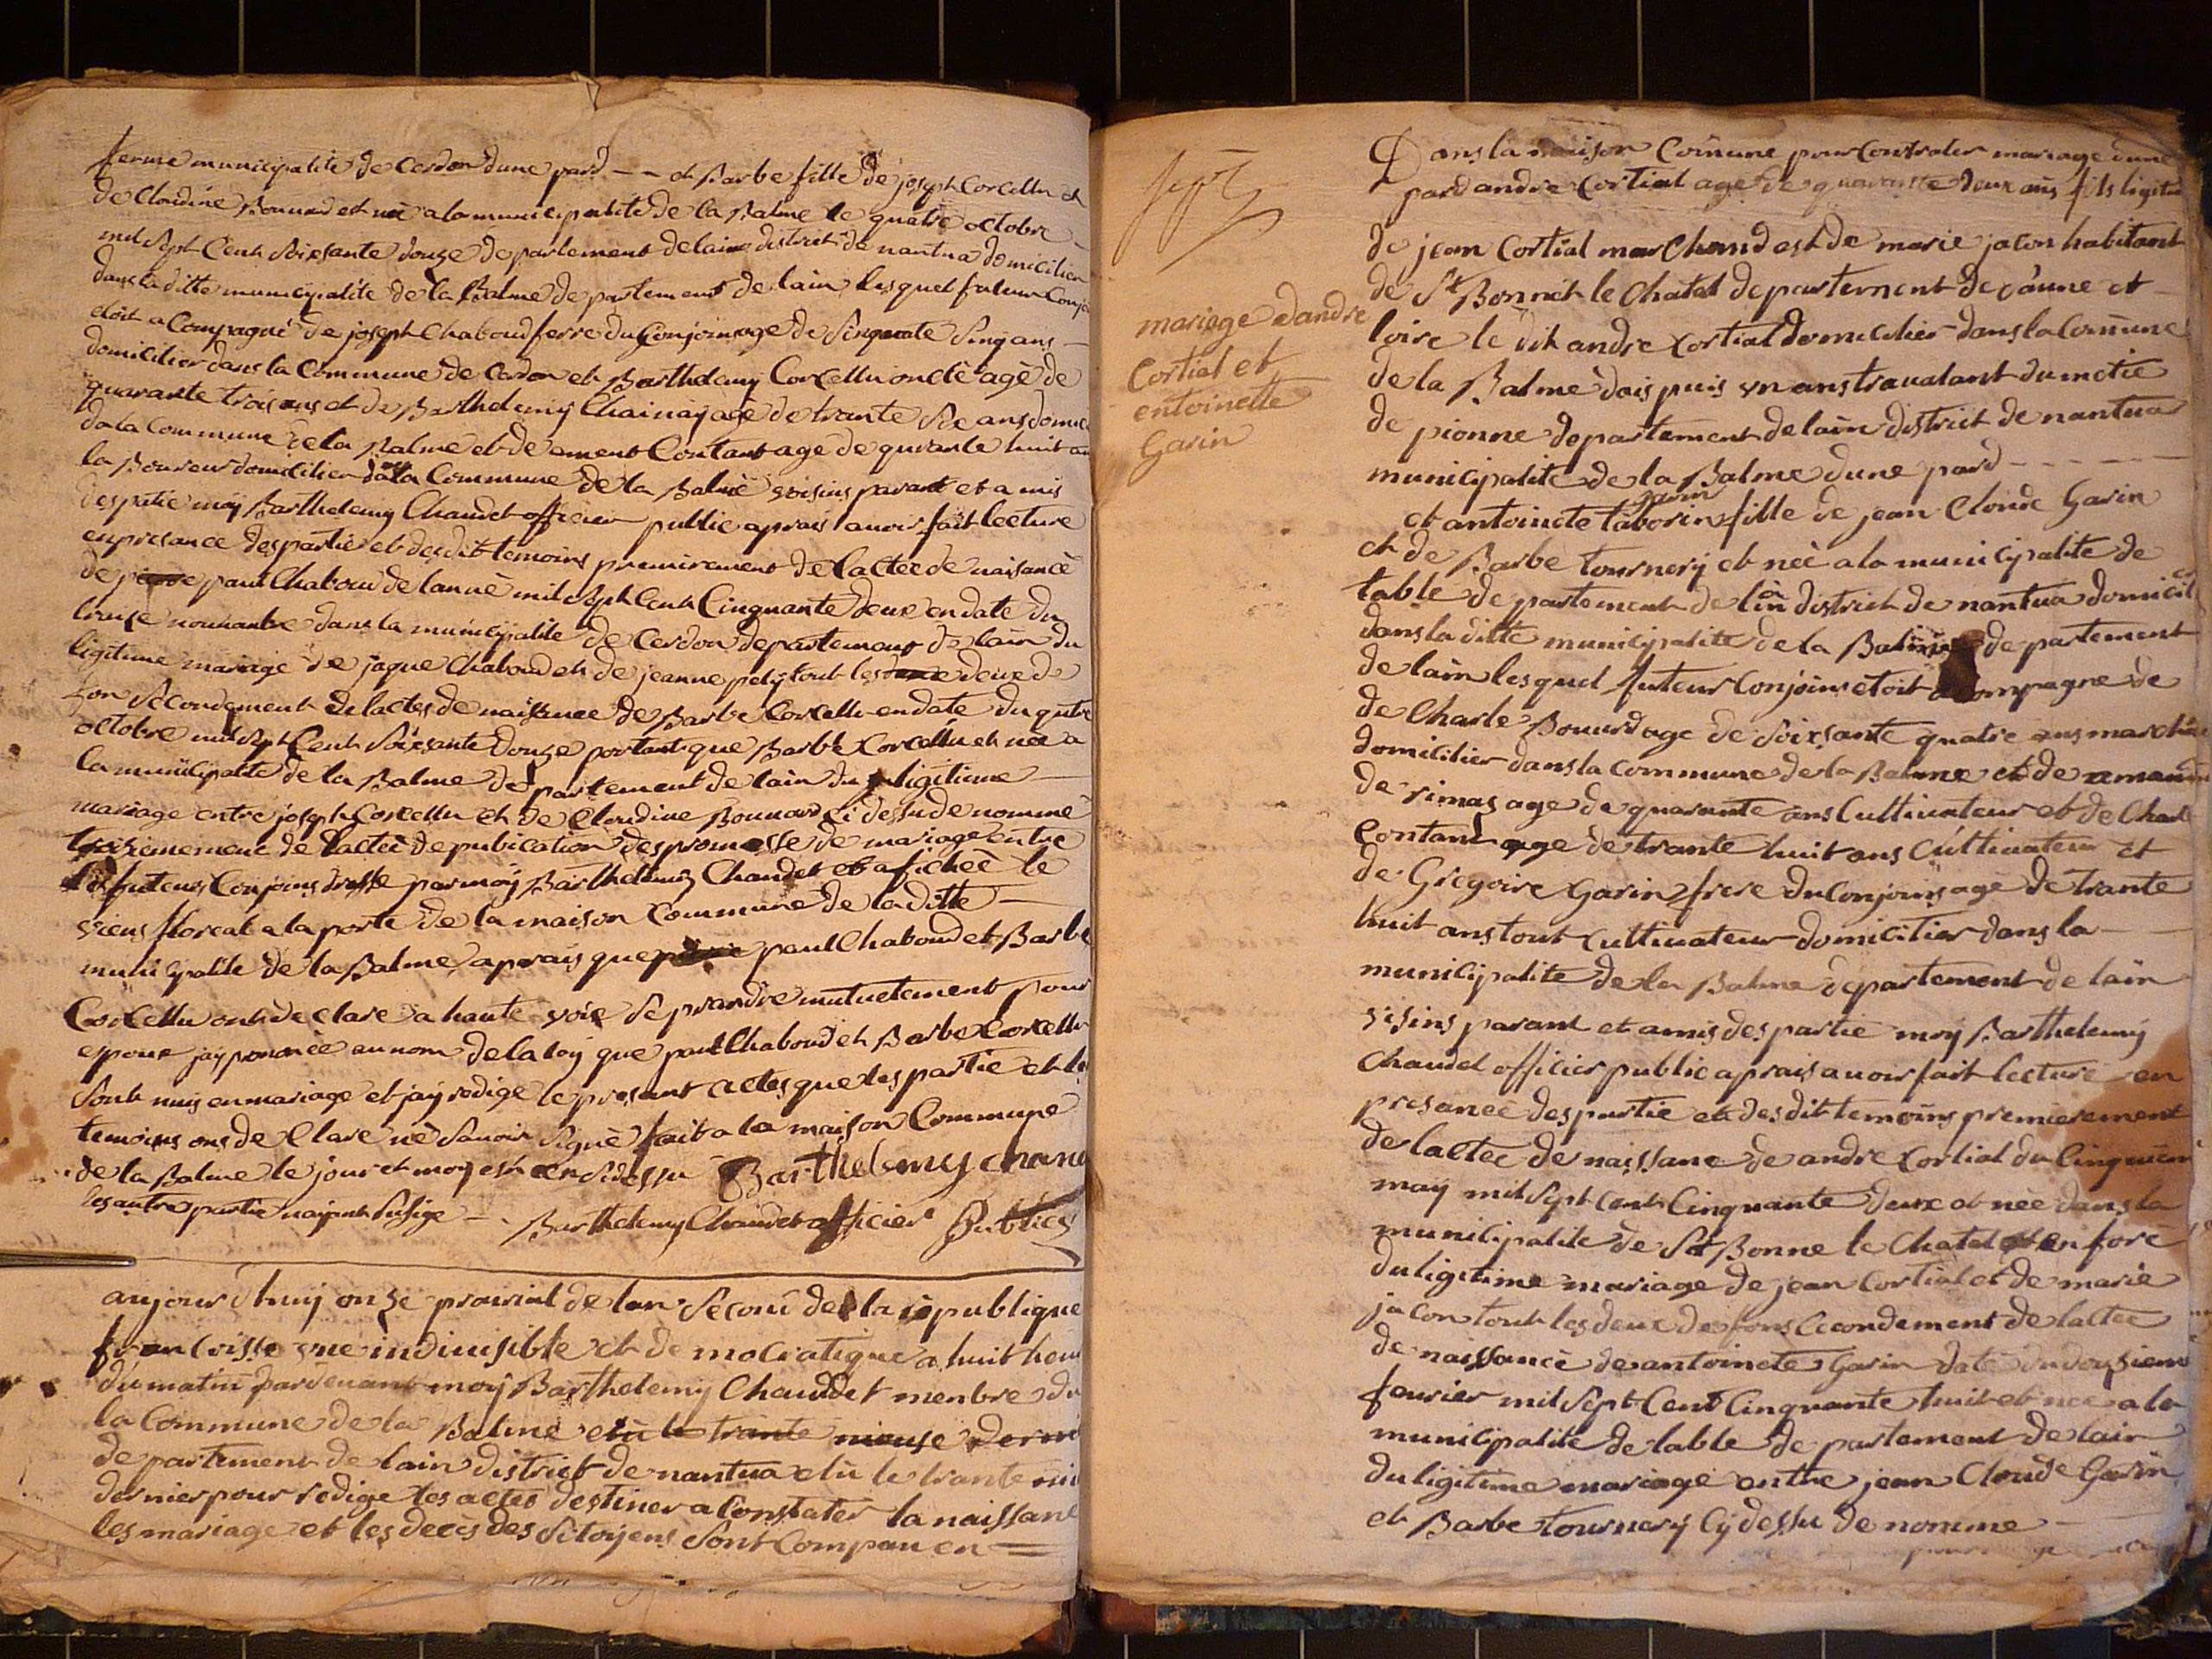 ferme municipalite de Cerdon dune pard - - et Barbe fille de joseph Corcellu et
de Cloudine Bonnard et neè a la municipalité de la Balme le quatre octobre -
mil Sept Cent Soixsante douze departement delain district de nantua domicilier
dans la ditte municipalite de la Balme departement de lain lesquel futeur Conjo
etoit a Compagné de joseph Chaboud ferre du Conjoinsage de Sinquate Sinq ans -
domicilier dans la Commune de Cerdon et Barthelemy Corcellu oncle agè de
quarante trois ans et de Barthelemy Chainay agè de trante Sie ans domi
dala Commune de la Balme et de ement Contant age de quarante huit an
la Boureur domicilier dans la Commune de la Balme voisins parant et a mis
des patie moy Barthelemy Chaudet officier public aprais avoir fait lecture
en presance des partie et des dit temoins premierement de lactee de naisance
de pierre paul Chaboud de lanneè mil Sept Cent Cinquante deux en date du
treuse nouvanbre dans la municipalite de Cerdon departement de lain du
ligitime mariage de jaque Chaboud et de jeanne pety tout les deux de
fon Secondement de lactes de naissance de Barbe Corcellu en date du qutre
octobre mil Sept Cent Soixsante douze portant que Barbe Corcellu et neè a
la municipalite de la Balme departement de lain du ligitieme -
mariage entre joseph Corcellu et de Cloudine Bonnard Ci dessu de nommè
troisiememene de lacteè de publication des promesse de mariage entre
les futeur Conjoins dresse par moy Barthelemy Chaudet et afichèe le
viens floreal a la porte de la maison Commune de la ditte -
municipalite de la Balme aprais que paul Chaboud et Barbe
Corcellu ont de clare a haute voie Se prandre mutuelement pour
espoux jay prononcè au nom de la loy que paul Chaboud et Barbe Corcellu
Sont nuis en mariage et jay redige le presant actes que les partie et le
temoins ons de Clare ne Savoir Signè fait a la maison Commune
de la Balme le jour et moy est an Sidessu Barthelemy chanu
les autre partie nayant Susige - . Barthelemy Chaudet officier Publics
aujour dhuy onze prairial de lan Second de la republique
francoisse une indiuisible et de mocratique a huit heur
du matin pardeuant moy Barthelemy Chauddet menbre du
la Commune de la Balme elù le trante nieuse dernie
departement de lain district de nantua elù le trante niu
dernier pour redige les actes destiner a Constater la naissanc
les mariage et les decès des Sitoyens Sont Comparu en =
Sept
mariage dandre
Cortial et
entoinette
Garin
Dans la maison Comune pour Contrater mariage dune
pard andre Cortial age de quarante deux ans fils ligitim
de jean Cortial marchand est de marie jacon habitant
de St Bonnet le Chatel departement de aune et -
loire le dit andre Cortial domicilier dans la Comune
de la Balme dais puis vn ans traualant du metie
de pionne departement de lain district de nantua
municipalite de la Balme dune pard - - - - - -
et antoinete taborin garin fille de jean Cloude Garin
et de Barbe tournery et neè a la municipalite de
table departement de lain district de nantua domicil
dans la ditte municipalite de la Balme departement
de lain lesquel futeur Conjoins etoit acompagne de
de Charle Bouurd age de Soixsante quatre ans march
domicilier dans la commune de la Balme et de amand
de rimas age de quarante ans Cultiuateur et de Charle
Contant age de trante huit ans Cultiuateur et
de Gregoire Garin frere du Conjoins agè de trante
huit ans tout Cultiuateur domicilier dans la -
municipalite de la Balme departement de lain
visins parant et amis des partie moy Barthelemy
Chaudet officier public aprais auoir fait lecture en
presanceè des partie et des dit temoins premierement
de lactee de naissanc de andre Cortial du Cinquiem
may mil Sept Cent Cinquante deux et neè dans la
municipalite de St Bonne le Chatel en forè
du ligitime mariage de jean Cortial et de marie
jacon tout les deux de fons Cecondement de lactee
de naissance de antoinete Garin date du dousieme
feurier mil Sept Cent Cinquante huit et nee a la
municipalite de lable departement de lain
du ligitime mariage entre jean Cloude Garin
et Barbe tournery Cy dessu de nomme -